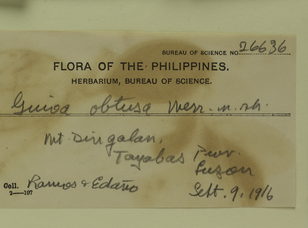 BUREAU OF SCIENCE NO. 26636
FLORA OF THE PHILIPPINES.
HERBARIUM, BUREAU OF SCIENCE.
Guioa obtusa Merr. n. sp.
Mt. Dingalan,
Tayabas Prov.
Luzon
Coll. Ramos & Edaño
Sept. 9, 1916
2—107